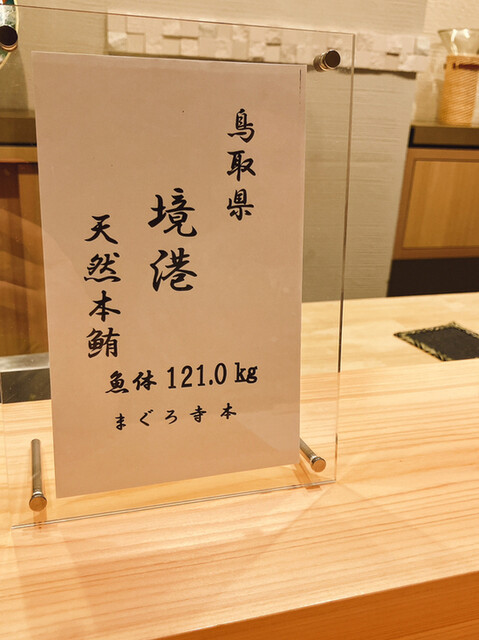 鳥取県
境港
天然本鮪
魚体 121.0 kg
まぐろ寺本